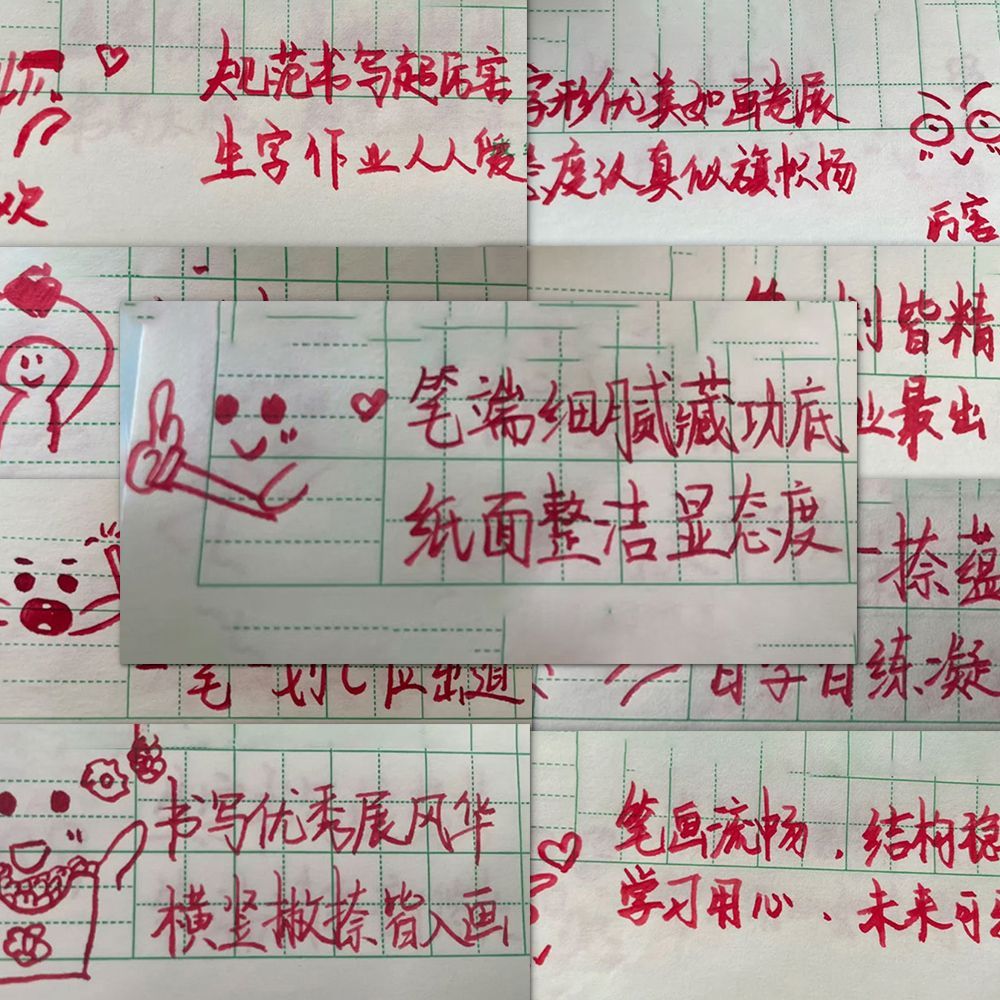 欢
规范书写超厉害
生字作业人人爱
字形优美如画卷展
态度认真似旗帜扬
厉害
皆精
业最出
笔端细腻藏功底
纸面整洁显态度
一捺蕴
日字日练凝
一笔一划C位出道
书写优秀展风华
横竖撇捺皆入画
笔画流畅，结构稳
学习用心，未来可